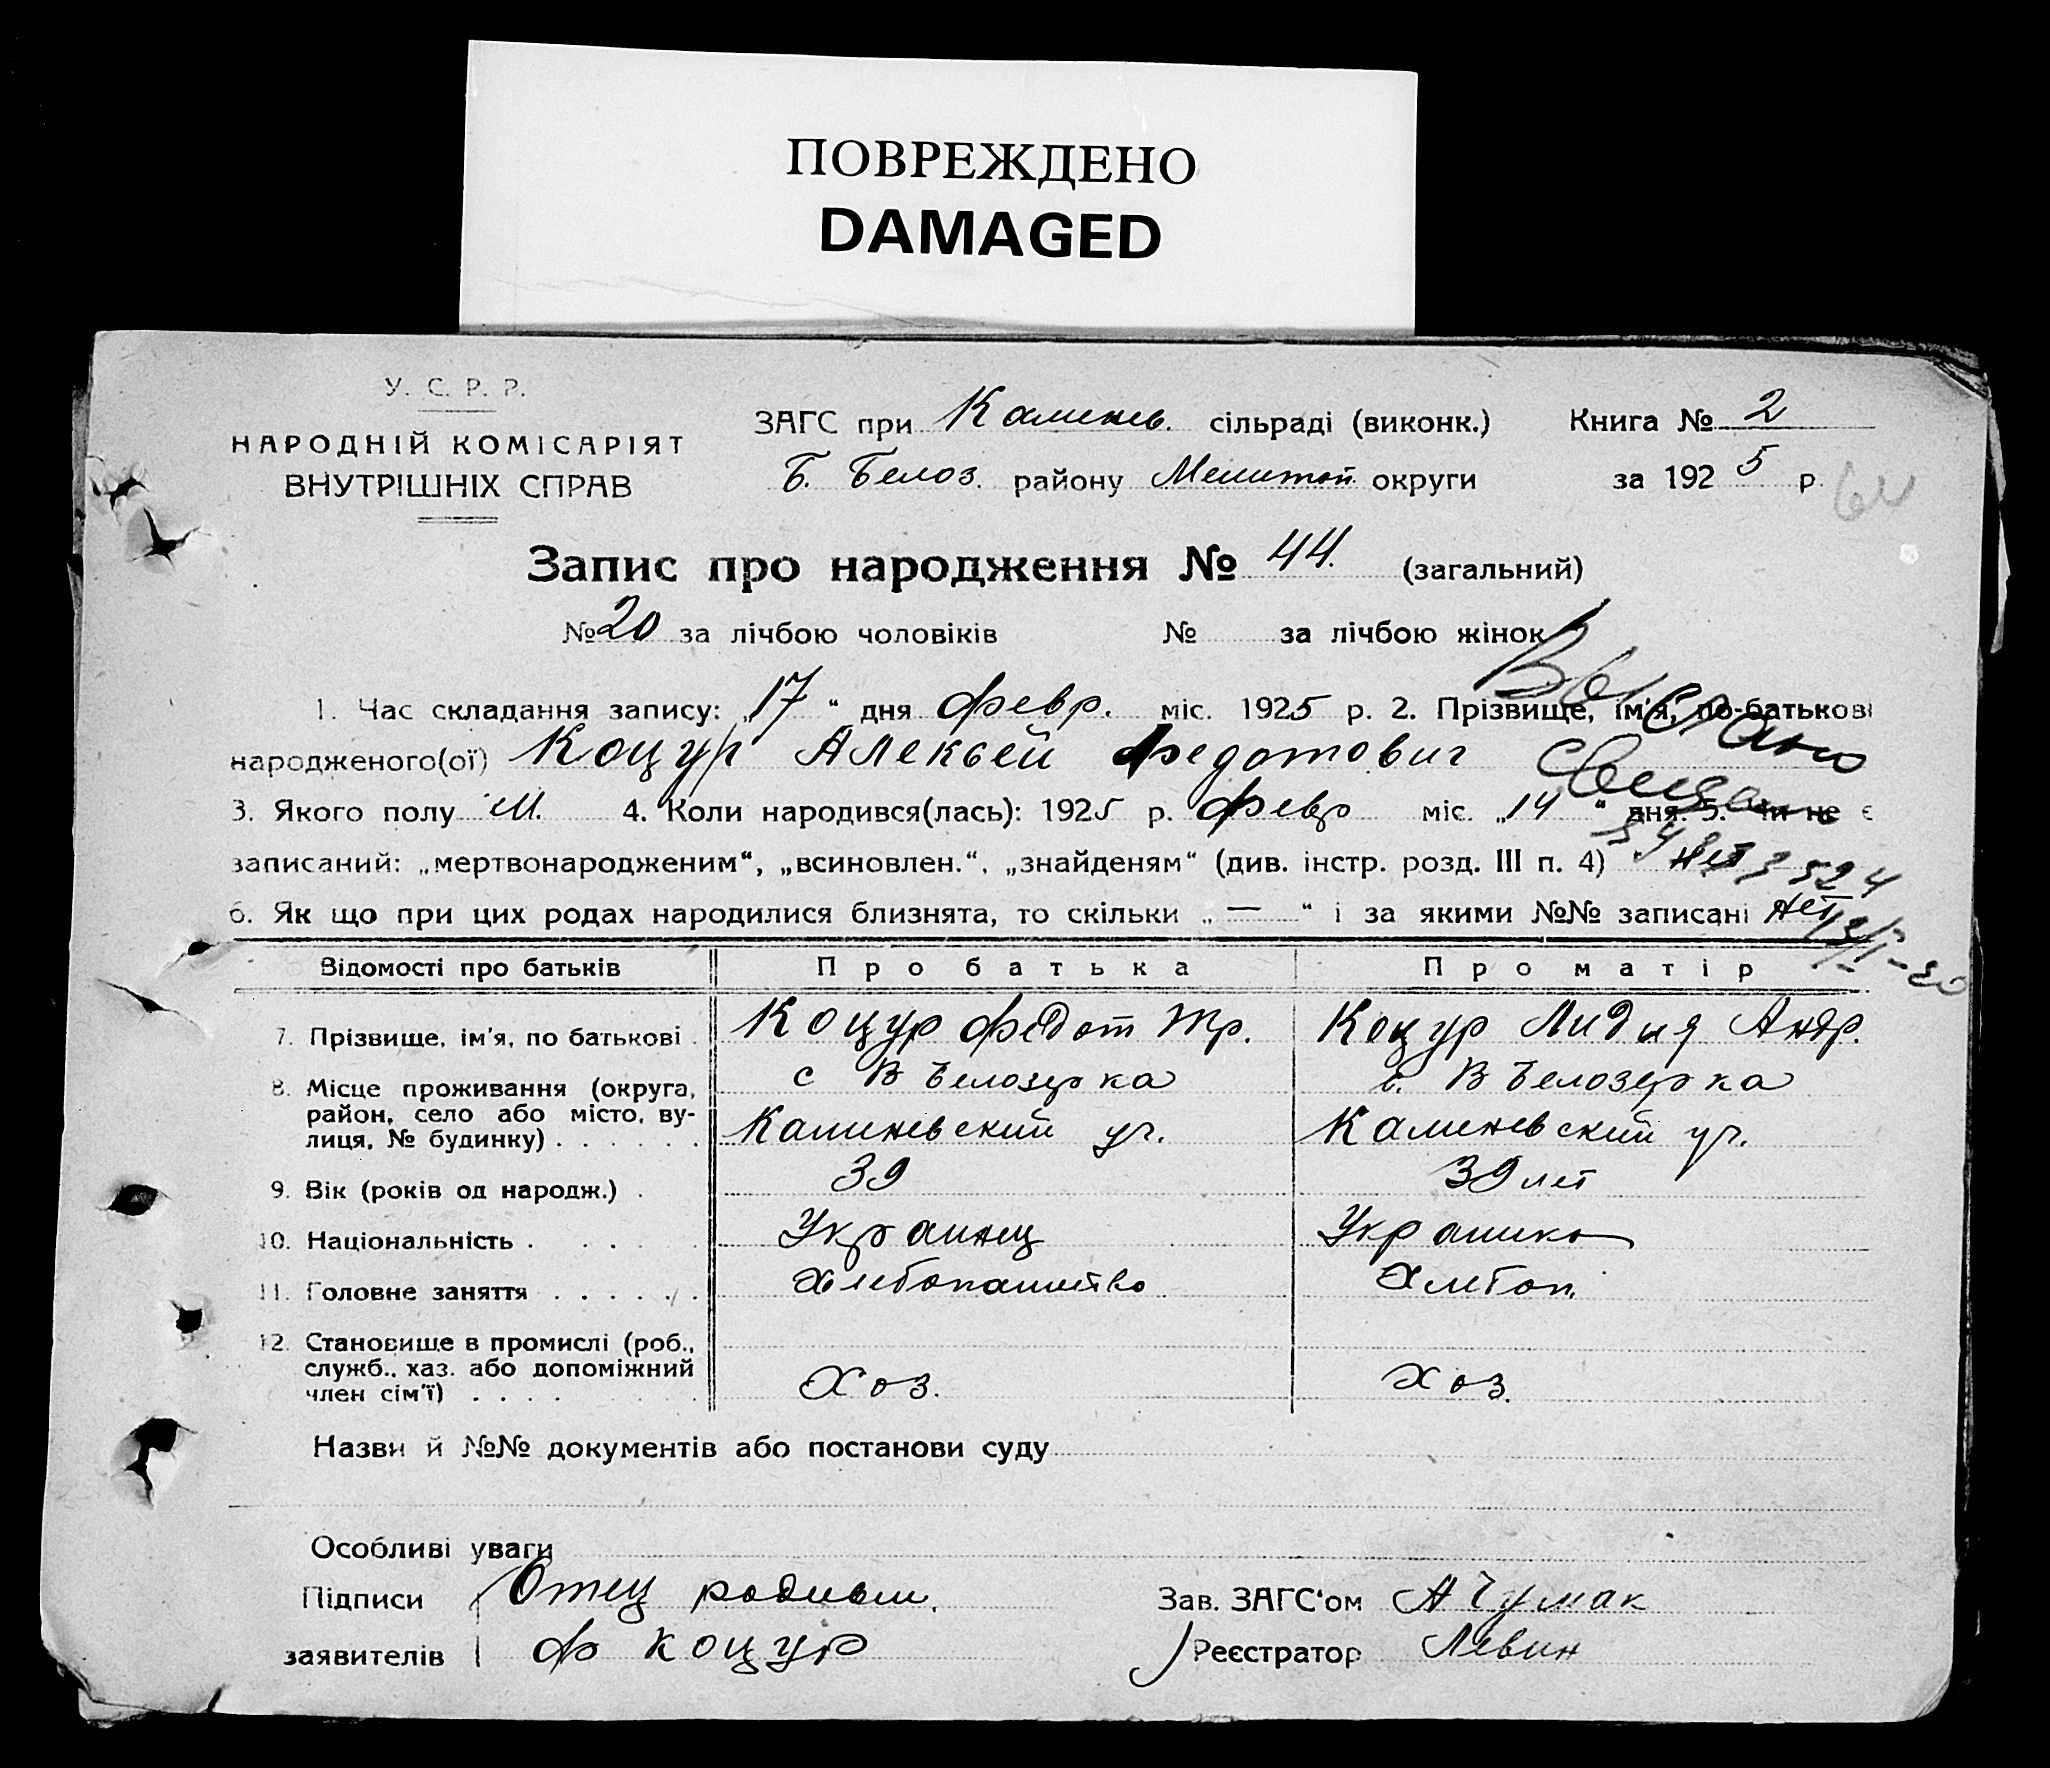 ПОВРЕЖДЕНО
DAMAGED
У. С. Р. Р.
НАРОДНІЙ КОМІСАРІЯТ
ВНУТРІШНІХ СПРАВ
ЗАГС при Калинев. сільраді (виконк.) Книга № 2
Б. Белоз. району Мелитоп. округи за 1925 р.
Запис про народження № 44. (загальний)
№ 20 за лічбою чоловіків № за лічбою жінок
1. Час складання запису: „17“ дня февр. міс. 1925 р. 2. Прізвище, ім'я, по-батькові
народженого(ої) Коцур Алексей Федотович
Выслано
свидет
3. Якого полу м. 4. Коли народився(лась): 1925 р. февр міс. „14“ дня. 5. Чи не є
записаний: „мертвонародженим“, „всиновлен.“, „знайденям“ (див. інстр. розд. III п. 4) нет
6. Як що при цих родах народилися близнята, то скільки „—“ і за якими №№ записані нет
Відомості про батьків Про батька Про матір
7. Прізвище, ім'я, по батькові . Коцур Федот Тр. Коцур Лидия Андр.
8. Місце проживання (округа, с В Белозерка с. В Белозерка
район, село або місто, ву-
лиця, № будинку) . . . . . . Калиневский уч. Калиневский уч.
9. Вік (років од народж.) . 39 39 лет
10. Національність . . . . . Украинец Украинка
11. Головне заняття . . . . . . Хлебопашество Хлебоп.
12. Становище в промислі (роб.,
служб., хаз. або допоміжний
член сім'ї) . . . . Хоз. Хоз.
Назви й №№ документів або постанови суду
Особливі уваги
Підписи Отец родивш. Зав. ЗАГС'ом А Чумак
заявителів Ф Коцур Реєстратор Левин